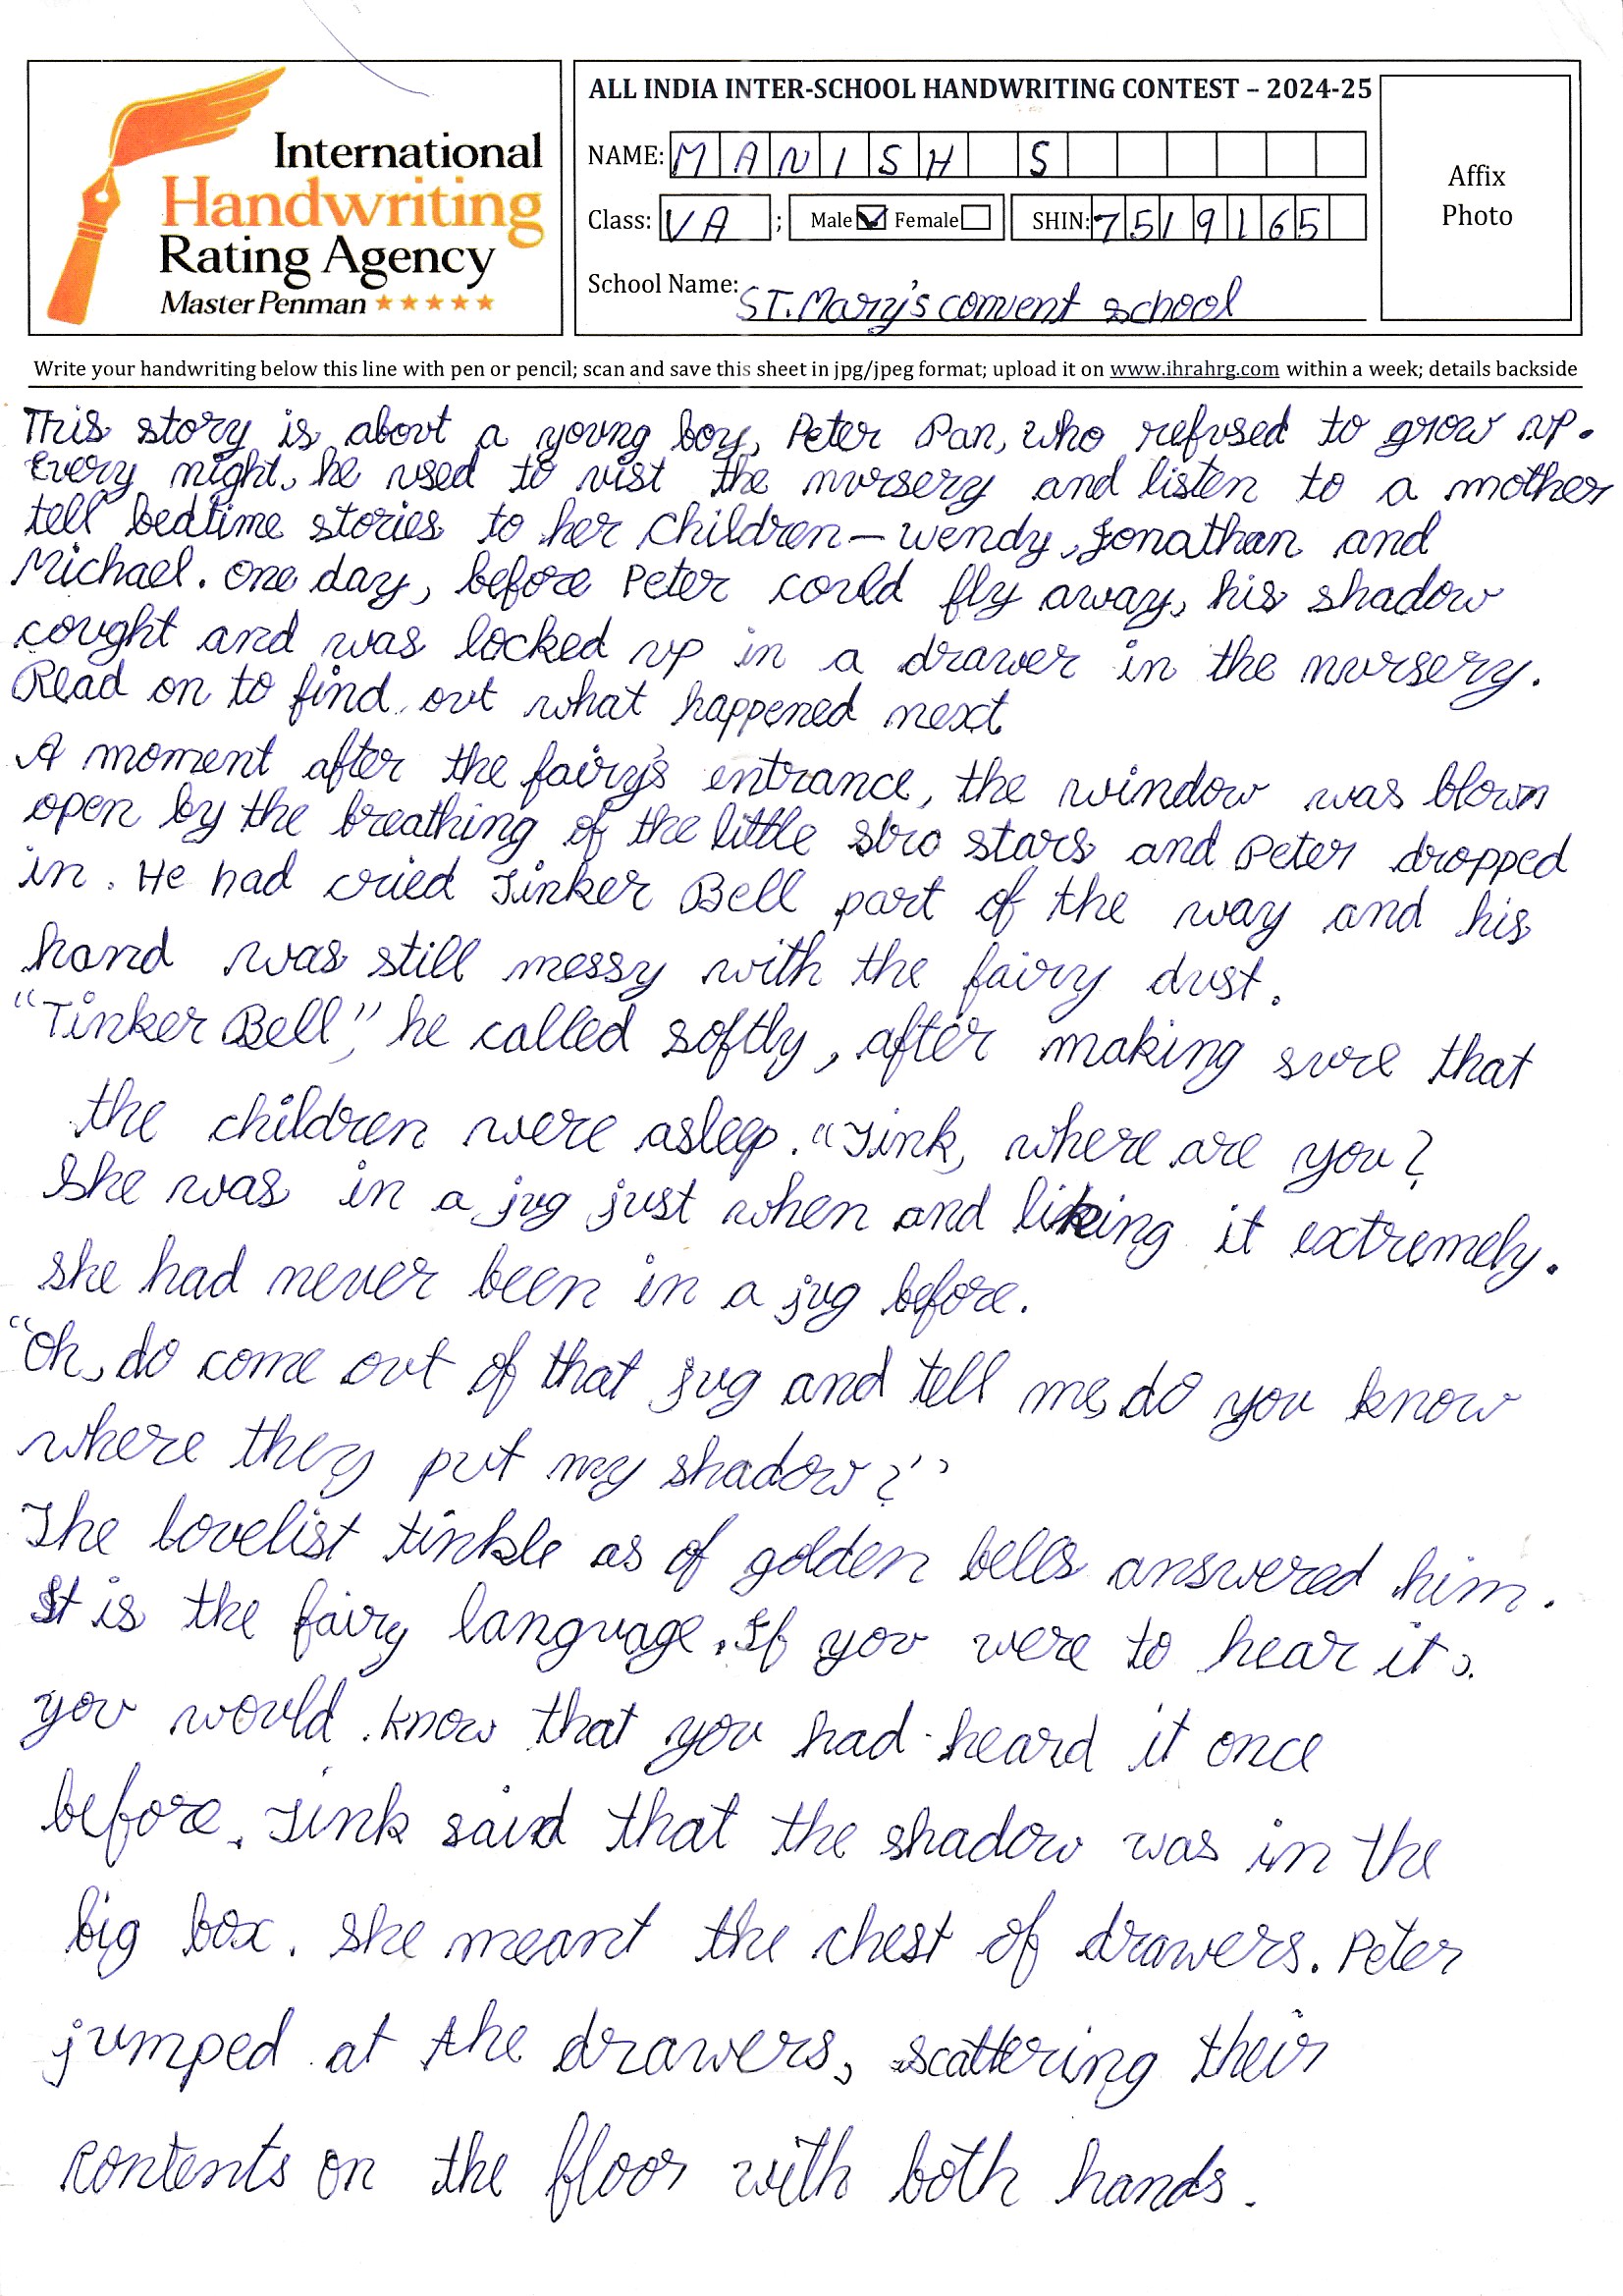 International
Handwriting
Rating Agency
Master Penman
ALL INDIA INTER-SCHOOL HANDWRITING CONTEST – 2024-25
NAME: MANISH S
Class: VA ; Male Female SHIN: 7519165
School Name: ST. Mary's convent school
Affix
Photo
Write your handwriting below this line with pen or pencil; scan and save this sheet in jpg/jpeg format; upload it on www.ihrahrg.com within a week; details backside
This story is about a young boy, Peter Pan, who refused to grow up.
Every night, he used to vist the nursery and listen to a mother
tell bedtime stories to her children – wendy, Jonathan and
Michael. One day, before Peter could fly away, his shadow
cought and was locked up in a drawer in the nursery.
Read on to find out what happened next
A moment after the fairy's entrance, the window was blown
open by the breathing of the little stro stars and Peter dropped
in. He had cried Tinker Bell part of the way and his
hand was still messy with the fairy dust.
"Tinker Bell," he called softly, after making sure that
the children were asleep. "Tink, where are you?
She was in a jug just when and liking it extremely.
she had never been in a jug before.
"Oh, do come out of that jug and tell me, do you know
where they put my shadow?"
The lovelist tinkle as of golden bells answered him.
It is the fairy language. If you were to hear it,
you would know that you had heard it once
before. Tink said that the shadow was in the
big box. She meant the chest of drawers. Peter
jumped at the drawers, scattering their
contents on the floor with both hands.